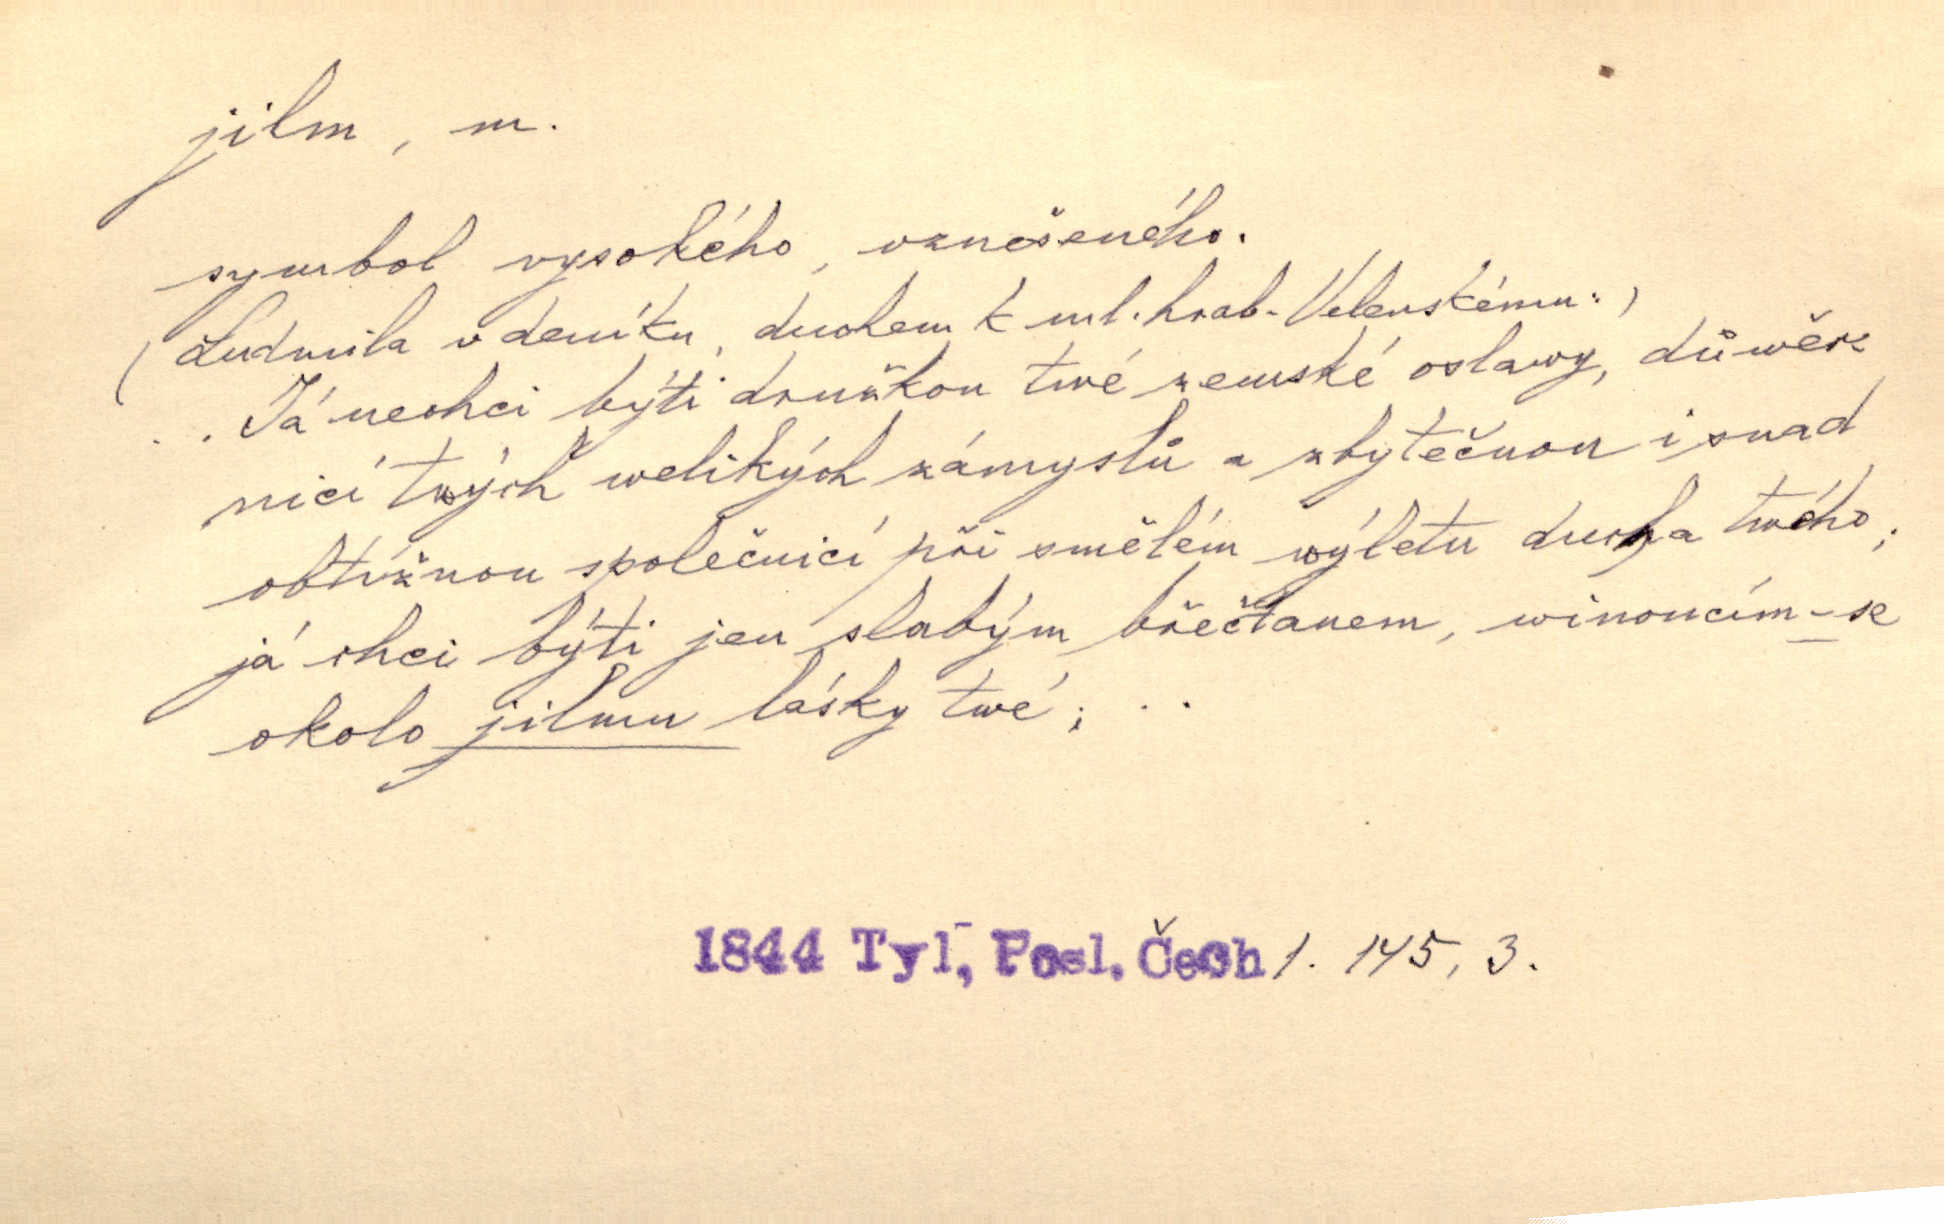 jilm, m.
symbol vysokého, vznešeného.
(Ludmila v deníku, duchem k ml. hrab. Velenskému:)
.. Já nechci býti družkou twé zemské oslawy, důwěr-
nicí twých welikých zámyslů a zbytečnou i snad
obtížnou společnicí při smělém wýletu ducha twého;
já chci býti jen slabým břečtanem, winoucím-se
okolo jilmu lásky twé; ..
1844 Tyl, Posl. Čech 1. 145, 3.